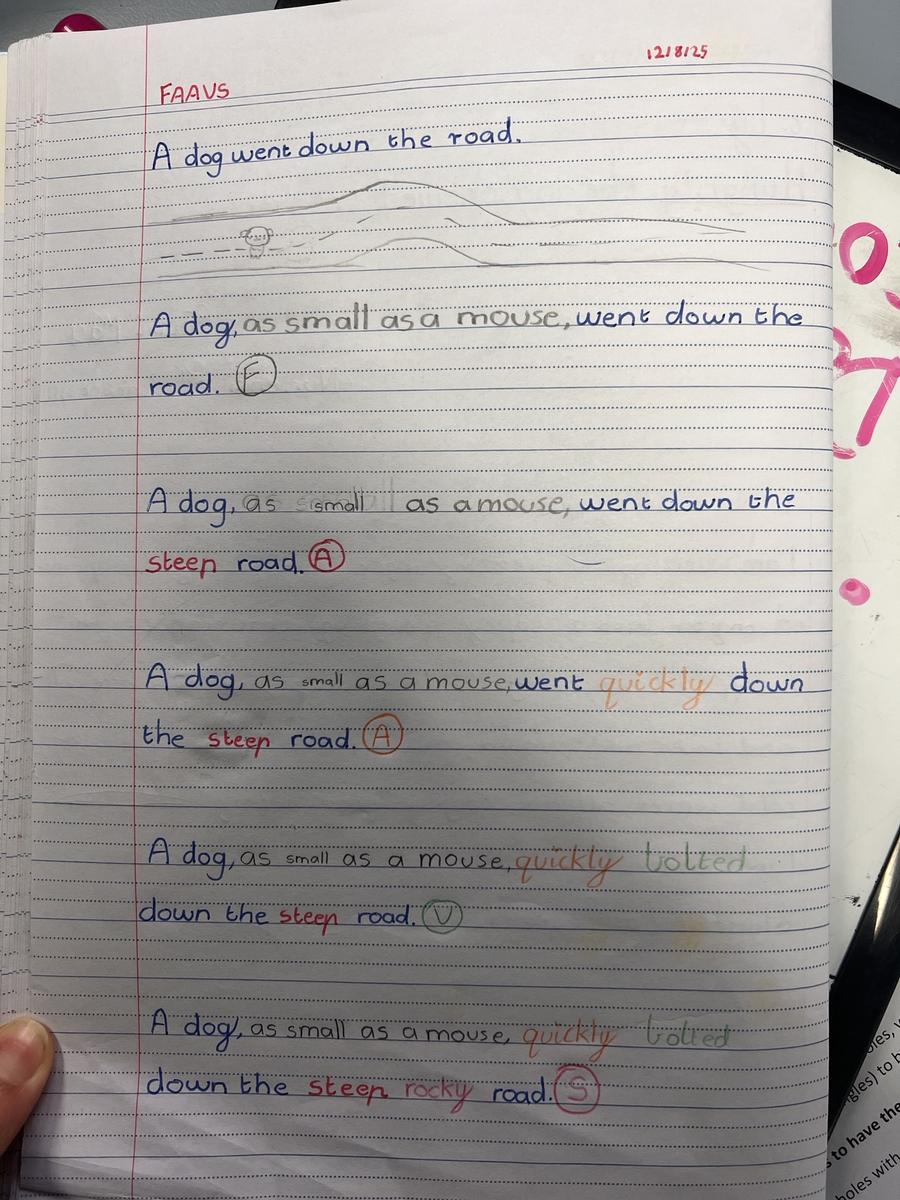 12/8/25
FAAVS
A dog went down the road.
A dog, as small as a mouse, went down the
road. F
A dog, as small as a mouse, went down the
steep road. A
A dog, as small as a mouse, went quickly down
the steep road. A
A dog, as small as a mouse, quickly bolted
down the steep road. V
A dog, as small as a mouse, quickly bolted
down the steep rocky road. S
gles) to
to have the
holes with